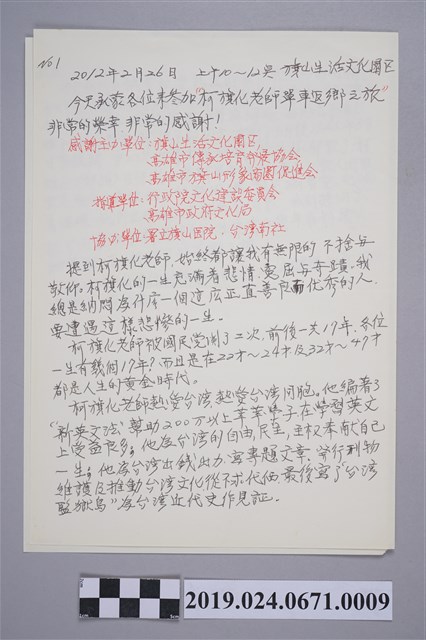 No1
2012年2月26日 上午10~12点 旗山生活文化園区
今天承蒙各位来参加"柯旗化老師單車返鄉之旅"
非常的榮幸 非常的感謝!
感謝主办單位:旗山生活文化園区,
高雄市傳承培育發展協会,
高雄市旗山形象商圈促進会
指導單位:行政院文化建設委員会
高雄市政府文化局
協办單位:署立旗山医院、台湾南社
提到柯旗化老師,始終都讓我有無限的不捨与
敬仰。柯旗化的一生充滿着悲情、憂屈与奇蹟。我
總是納悶為什庅一個這庅正直善良而优秀的人,
要遭遇這樣悲慘的一生。
柯旗化老師被國民党関了二次,前後一共17年,各位
一生有幾個17年?而且是在22才~24才及32才~47才
都是人生的黄金時代。
柯旗化老師熱愛台湾,熱愛台湾同胞。他編著了
"新英文法"幫助200万以上莘莘學子在學習英文
上受益良多;他為台湾的自由,民主,主权奉献自己
一生;他為台湾出錢出力,寫專題文章,發行刊物
維護及推動台湾文化從不求代価,最後寫了"台湾
監獄島"為台湾近代史作見証。
1cm
2019.024.0671.0009